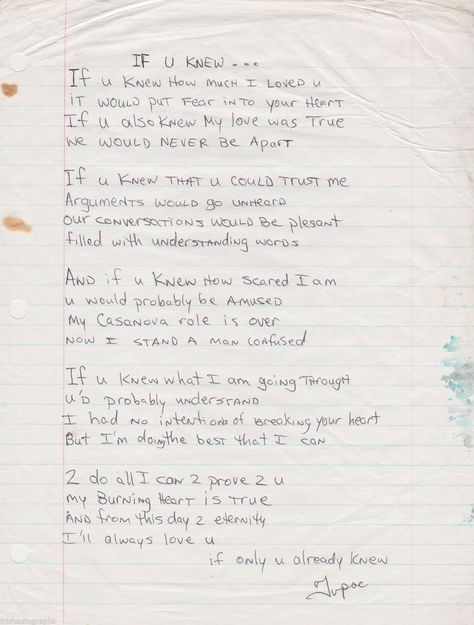 IF U KNEW ...
If u Knew How much I Loved u
iT WOULD PUT FEAR INTO your HEART
If u also Knew My love was True
We WOULD NEVER Be ApART
If u Knew THAT u COULD TRUST me
Arguments WOULD go UNHEARD
OUR CONVERSATIONS WOULD Be plesant
filled with understanding words
AND if u Knew How scared I am
u would probably be Amused
My Casanova role is over
NOW I STAND A MAN CONfused
If u Knew what I am going Through
u'D probably understand
I had no intentions of Breaking your heart
But I'm doing the best that I can
2 do all I can 2 prove 2 u
my Burning Heart is True
AND from this day 2 eternity
I'll always love u
if only u already Knew
Tupac
irishautographs